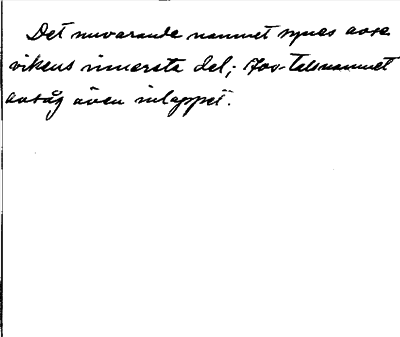 Det nuvarande namnet synes avse
vikens innersta del; 700-talsnamnet
avsåg även inloppet.